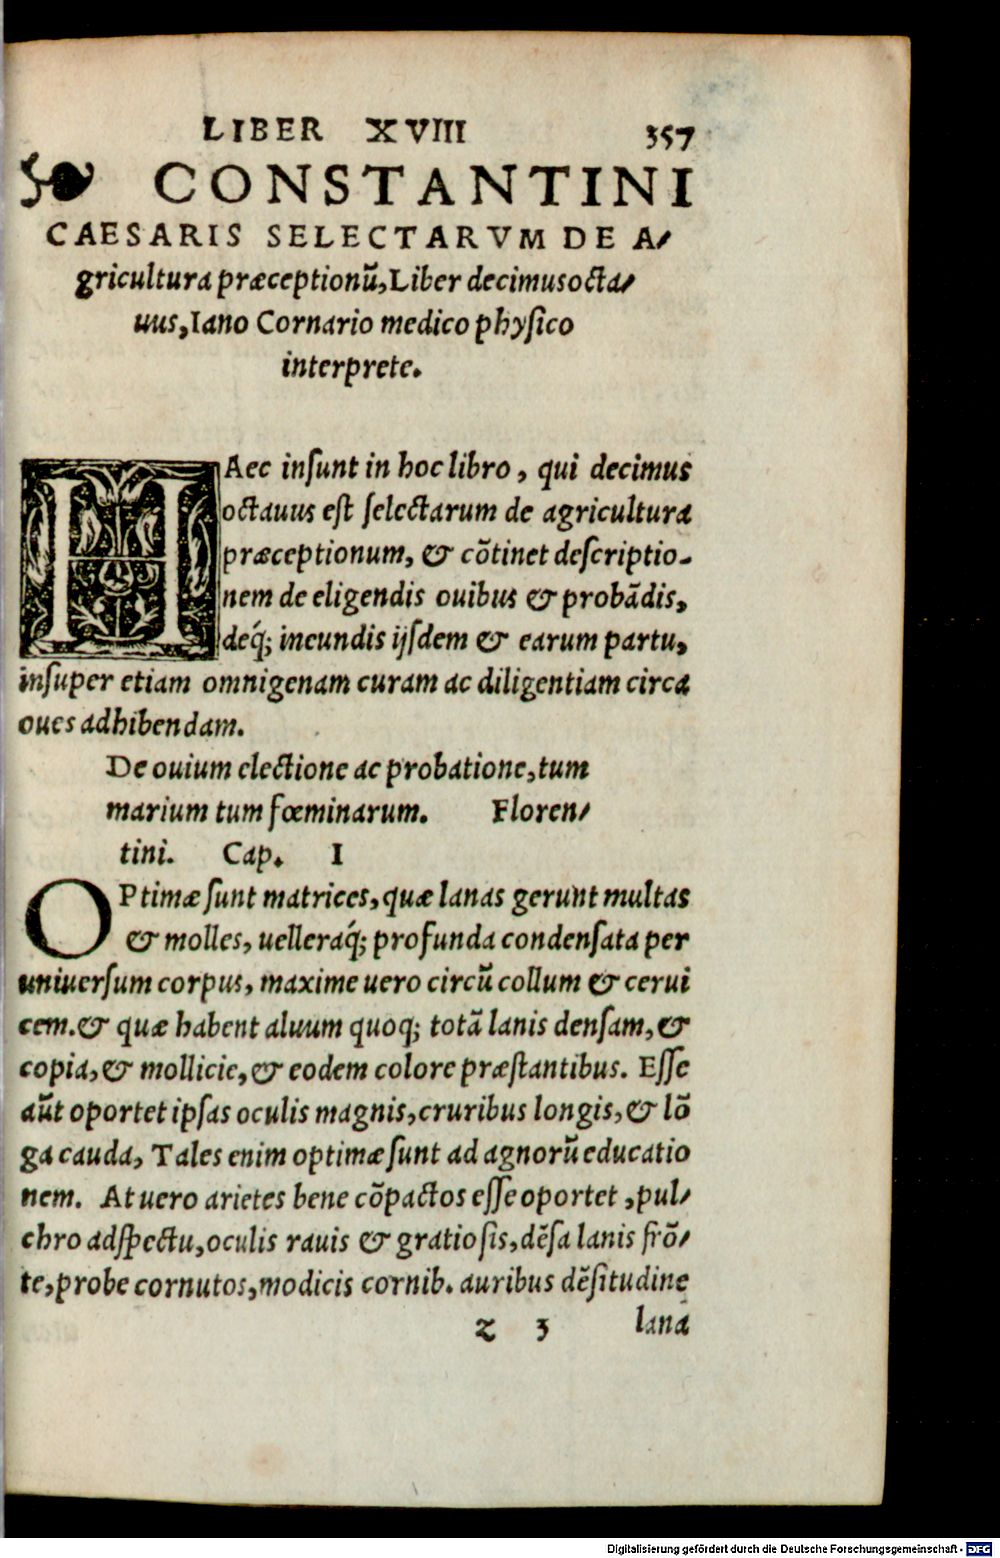 LIBER XVIII 357
CONSTANTINI
CAESARIS SELECTARVM DE A⸗
gricultura præceptionũ, Liber decimusocta⸗
uus, Iano Cornario medico physico
interprete.
HAec inſunt in hoc libro, qui decimus
octauus eſt ſelectarum de agricultura
præceptionum, & cõtinet deſcriptio-
nem de eligendis ouibus & probãdis,
deq́; ineundis ijſdem & earum partu,
inſuper etiam omnigenam curam ac diligentiam circa
oues adhibendam.
De ouium electione ac probatione, tum
marium tum fœminarum. Floren⸗
tini. Cap. I
OPtimæ ſunt matrices, quæ lanas gerunt multas
& molles, uelleraq́; profunda condenſata per
uniuerſum corpus, maxime uero circũ collum & cerui
cem. & quæ habent aluum quoq; totã lanis denſam, &
copia, & mollicie, & eodem colore præſtantibus. Eſſe
aũt oportet ipſas oculis magnis, cruribus longis, & lõ
ga cauda, Tales enim optimæ ſunt ad agnorũ educatio
nem. At uero arietes bene cõpactos eſſe oportet, pul⸗
chro adſpectu, oculis rauis & gratioſis, dẽſa lanis frõ⸗
te, probe cornutos, modicis cornib. auribus dẽſitudine
z 3 lana
Digitalisierung gefördert durch die Deutsche Forschungsgemeinschaft - DFG